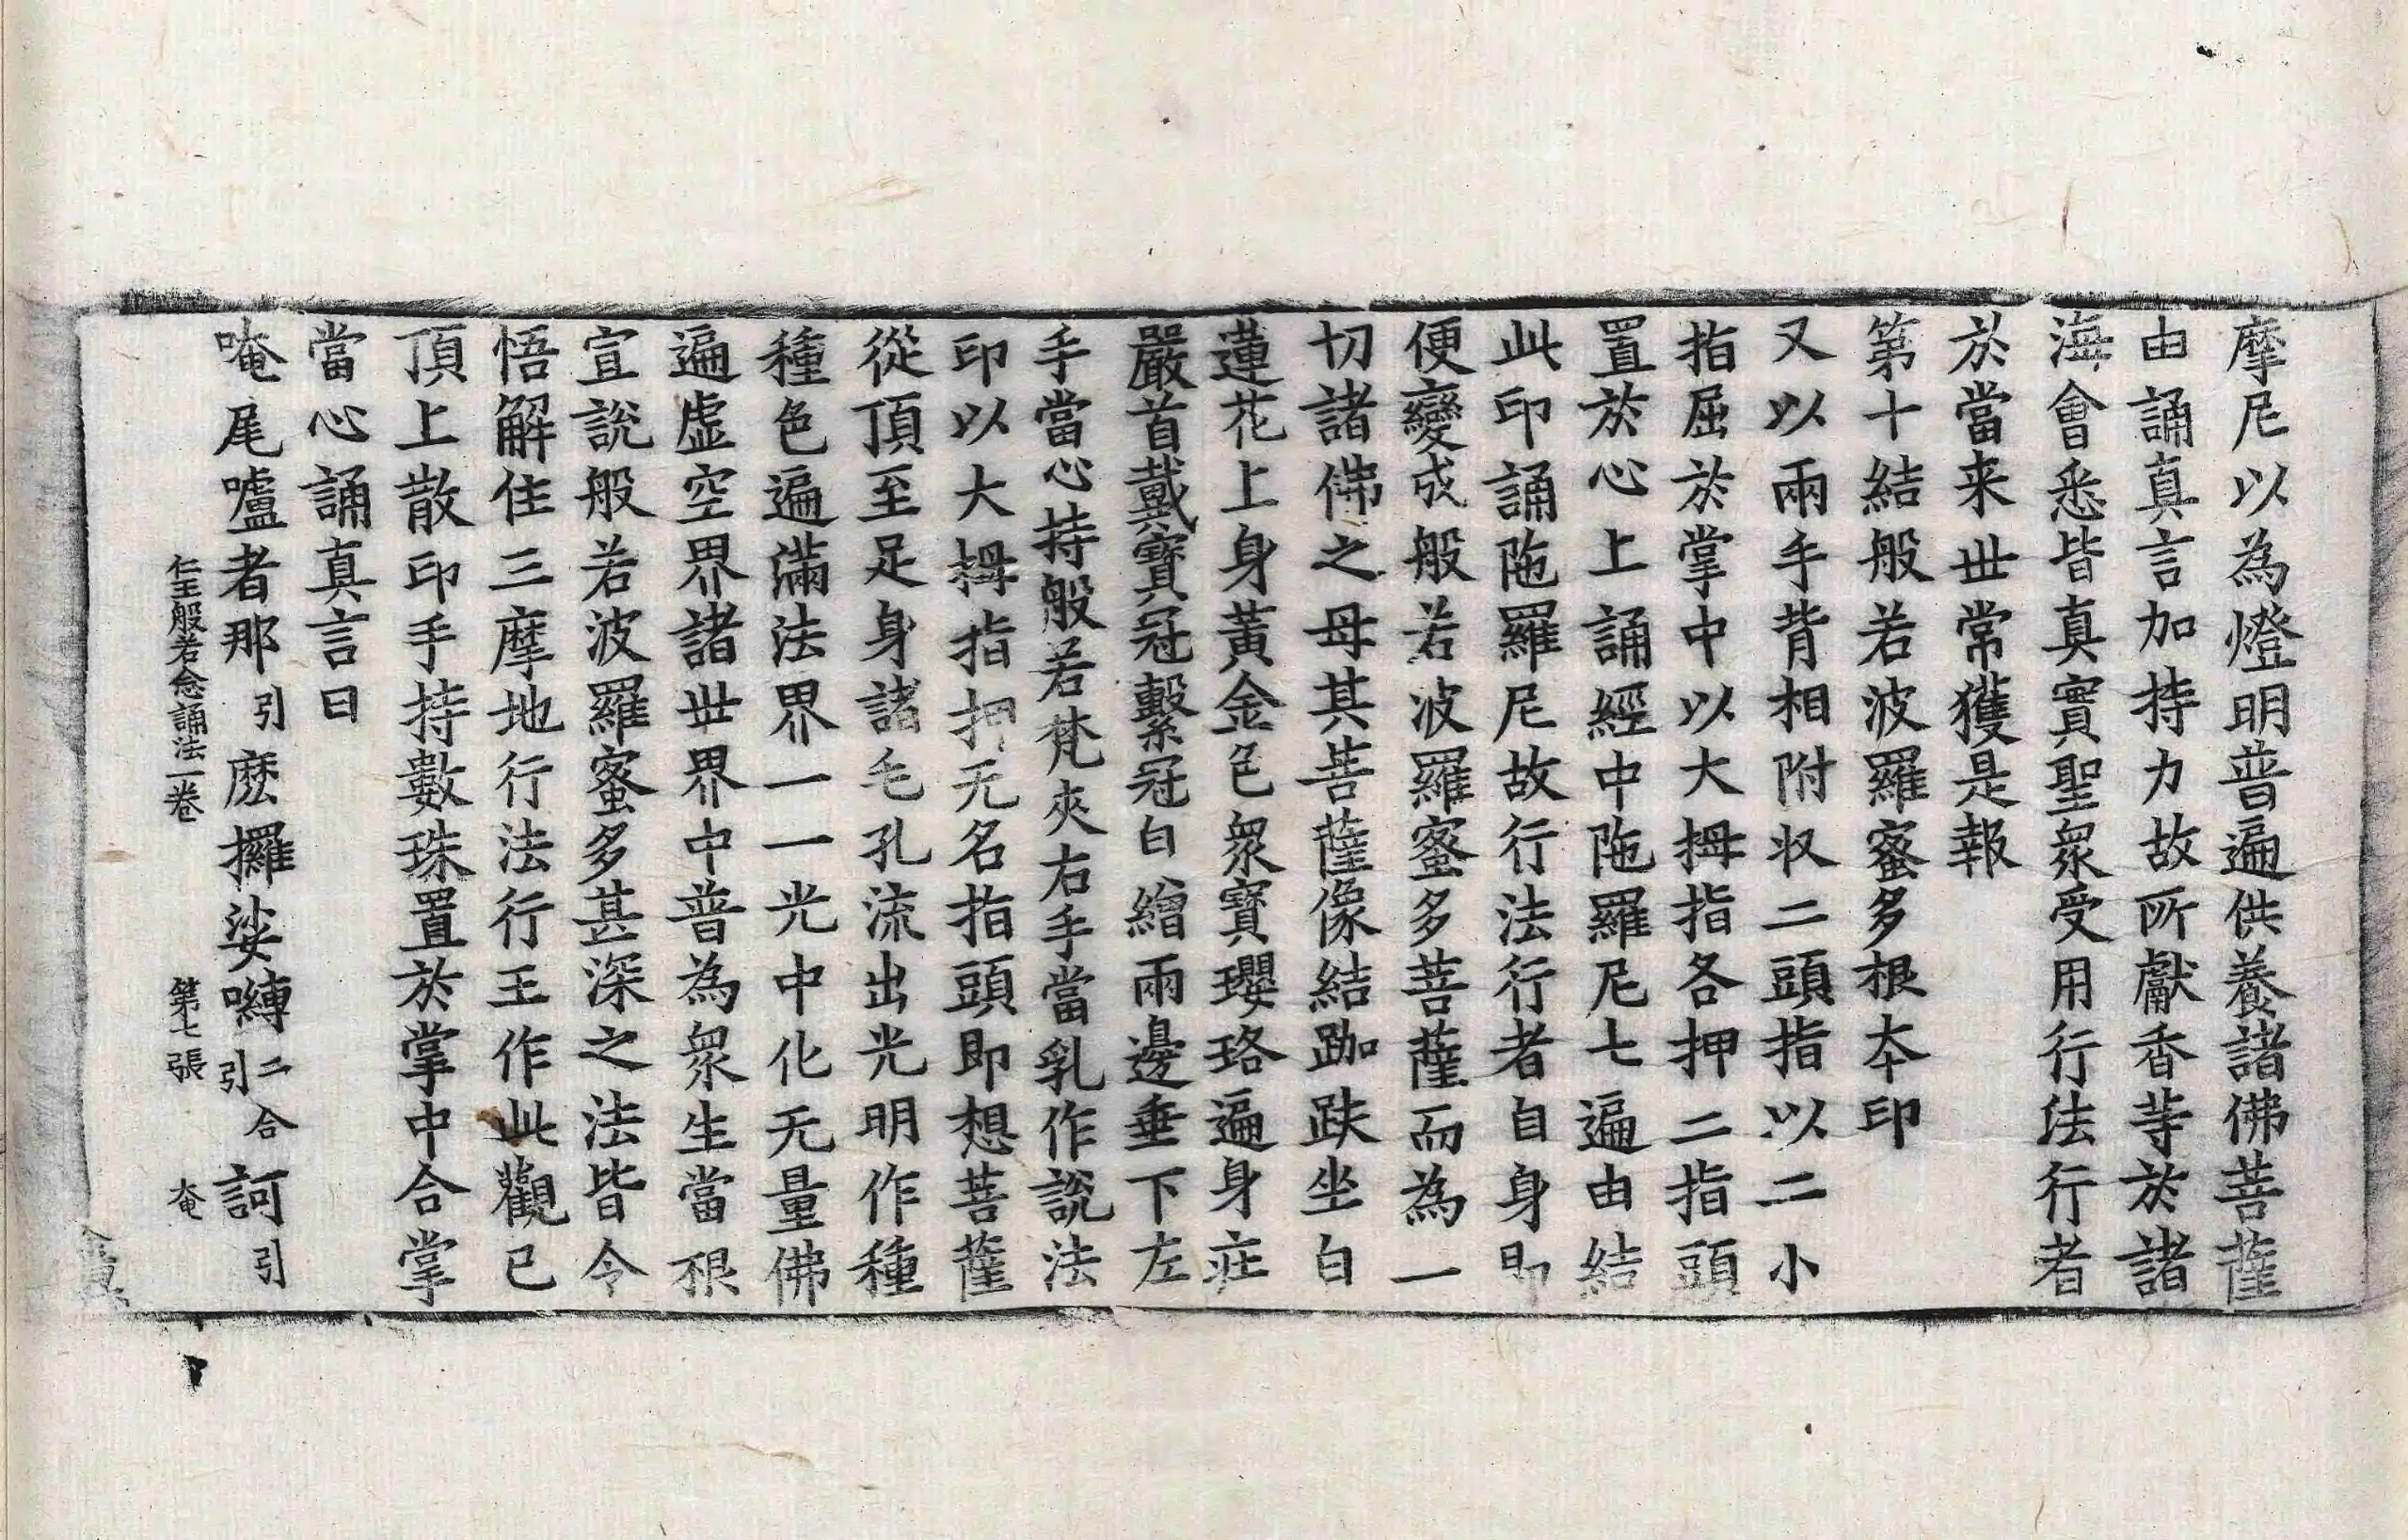 摩尼以為燈明普遍供養諸佛菩薩
由誦真言加持力故所獻香䓁於諸
海會悉皆真實聖衆受用行法行者
於當来世常獲是報
第十結般若波羅蜜多根本印
又以兩手背相附収二頭指以二小
指屈於掌中以大拇指各押二指頭
置於心上誦經中陁羅尼七遍由結
此印誦陁羅尼故行法行者自身即
便變成般若波羅蜜多菩薩而為一
切諸佛之母其菩薩像結跏趺坐白
蓮花上身黃金色衆寶瓔珞遍身荘
嚴首戴寶冠繫冠白繒兩邊垂下左
手當心持般若梵夾右手當乳作說法
印以大拇指押无名指頭即想菩薩
從頂至足身諸毛孔流出光明作種
種色遍滿法界一一光中化无量佛
遍虛空界諸世界中普為衆生當根
宣說般若波羅蜜多甚深之法皆令
悟解住三摩地行法行王作此觀已
頂上散印手持數珠置於掌中合掌
當心誦真言曰
唵尾嚧者那引麽攞娑嚩二合引訶引
仁王般若念誦法一卷 第七張 奄